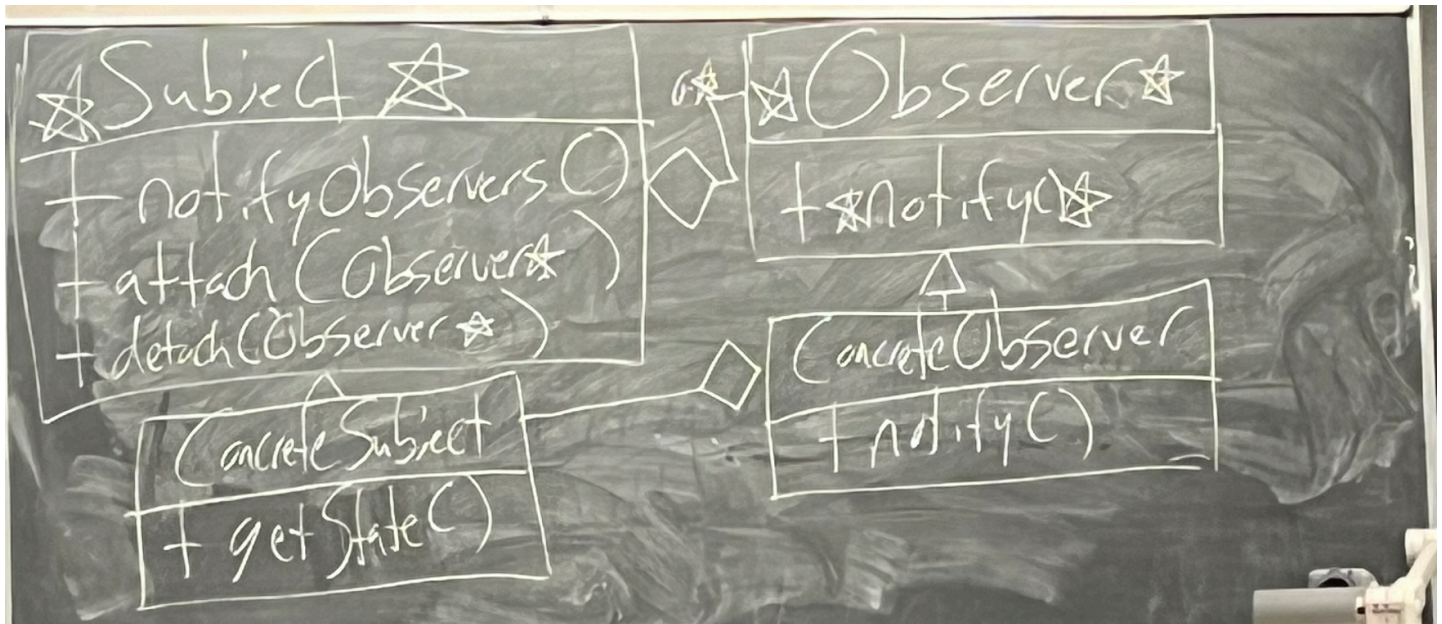 ☆Subject☆
+ notifyObservers()
+ attach(Observer☆)
+ detach(Observer☆)
ConcreteSubject
+ getState()
0..☆
☆Observer☆
+ ☆notify()☆
ConcreteObserver
+ notify()